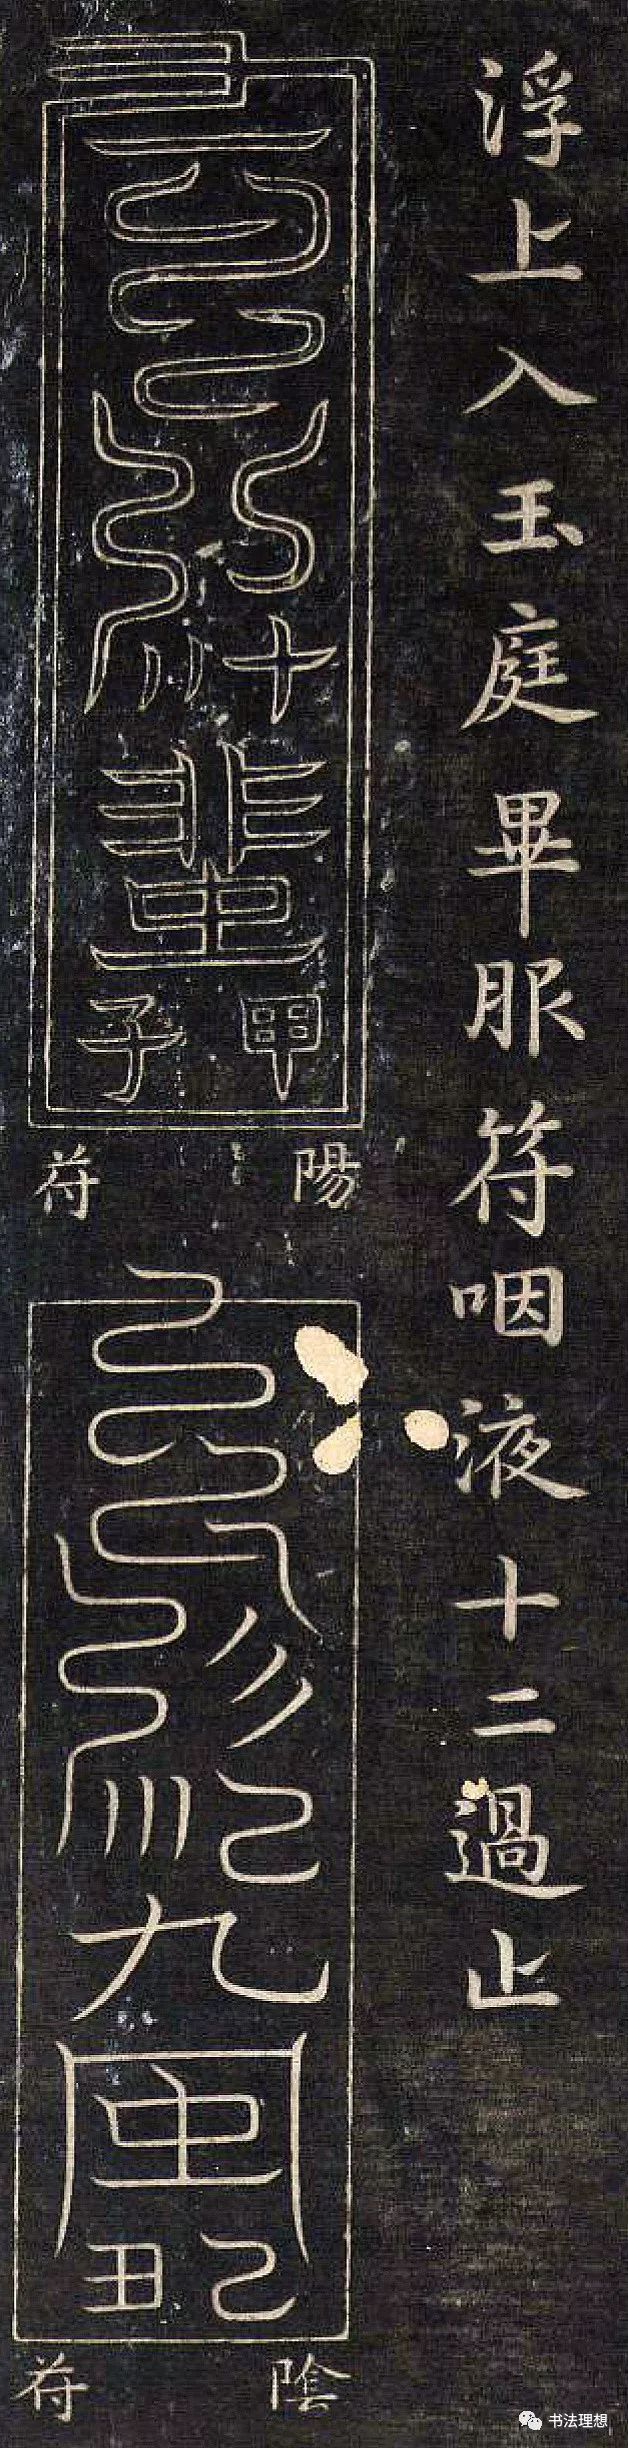 浮上入玉庭畢服符咽液十二過止
甲子
陽符
己丑
陰符
书法理想